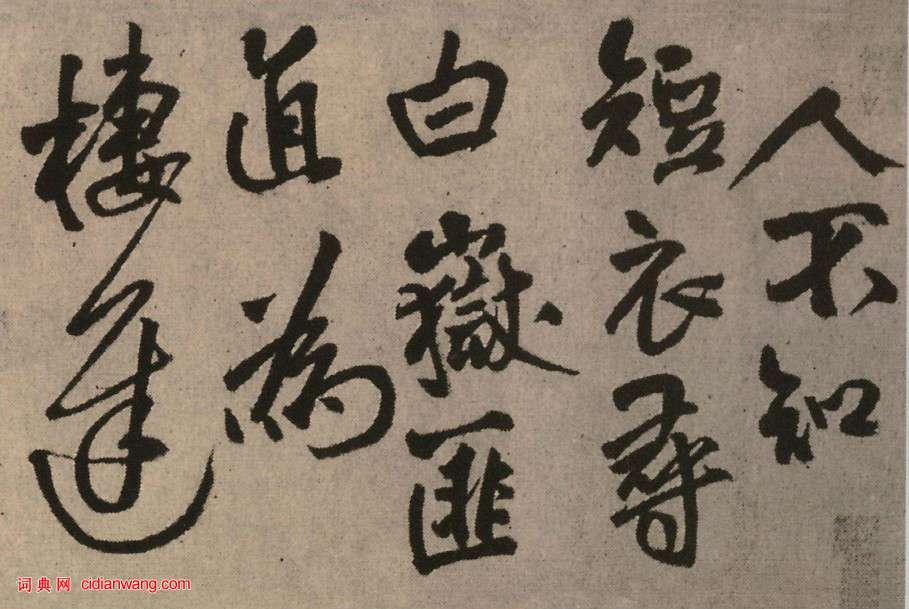 人不知
短衣尋
白嶽匪
道為
棲遲
词典网 cidianwang.com